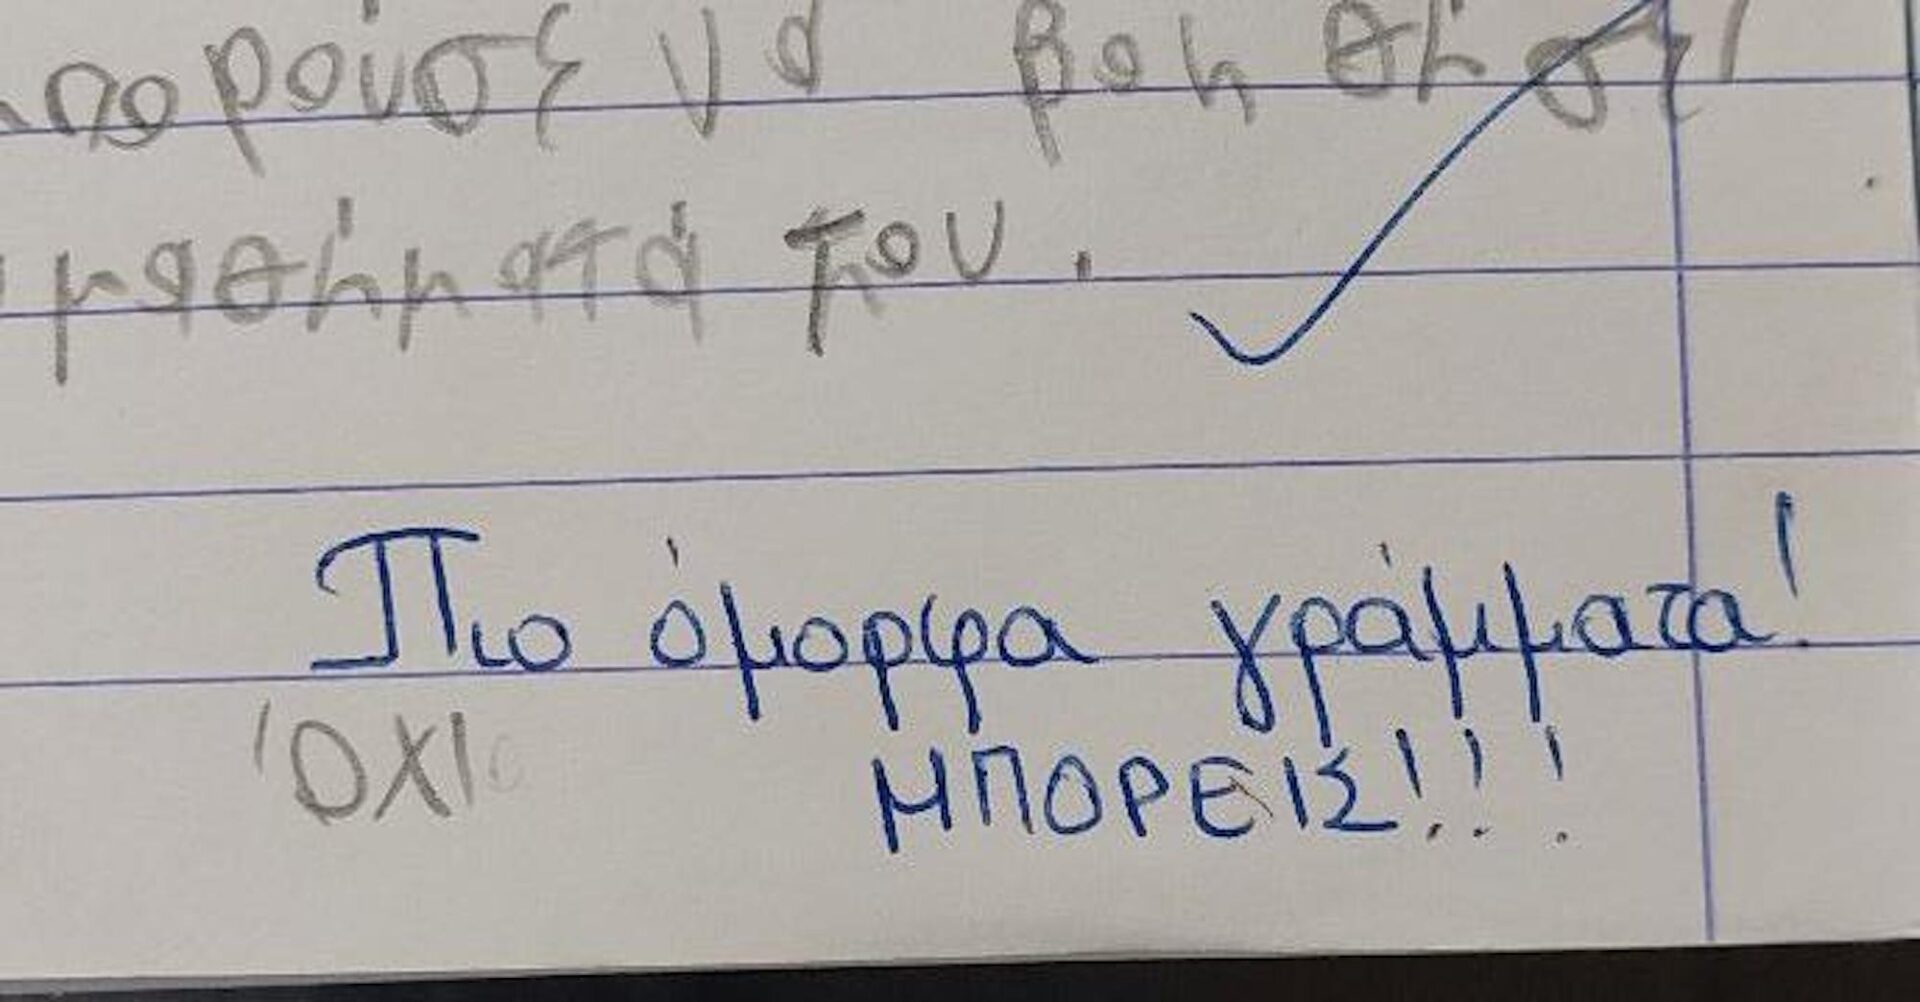 μπορούσε να βοηθήσει
μαθήματά του.
Πιο όμορφα γράμματα!
ΌΧΙ ΜΠΟΡΕΙΣ!!!